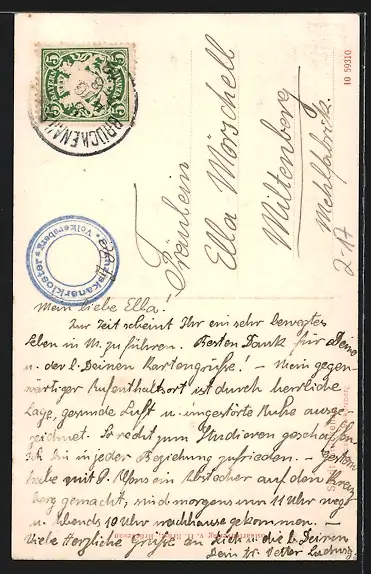 BAYERN
5
5
BRÜCKENAU
Franziskanerkloster * Volkersberg *
10 59310
Fräulein
Ella Mörschell
Miltenberg
Mehlfabrik.
2-17
Mein liebe Ella!
Zur Zeit scheint Ihr ein sehr bewegtes
Leben in M. zu führen. Besten Dank für Deine
u. der l. Deinen Kartengrüße! – Mein gegen-
wärtiger Aufenthaltsort ist durch herrliche
Lage, gesunde Luft u. ungestörte Ruhe ausge-
zeichnet. So recht zum Studieren geschaffen.
Ich bin in jeder Beziehung zufrieden. – Gestern
habe mit P. Alfons ein Abstecher auf den Kreuz-
berg gemacht, sind morgens um 11 Uhr weg
u. Abends 10 Uhr nachhause gekommen. –
Viele herzliche Grüße an Dich u. die l. Deinen
Dein Vetter Ludwig.